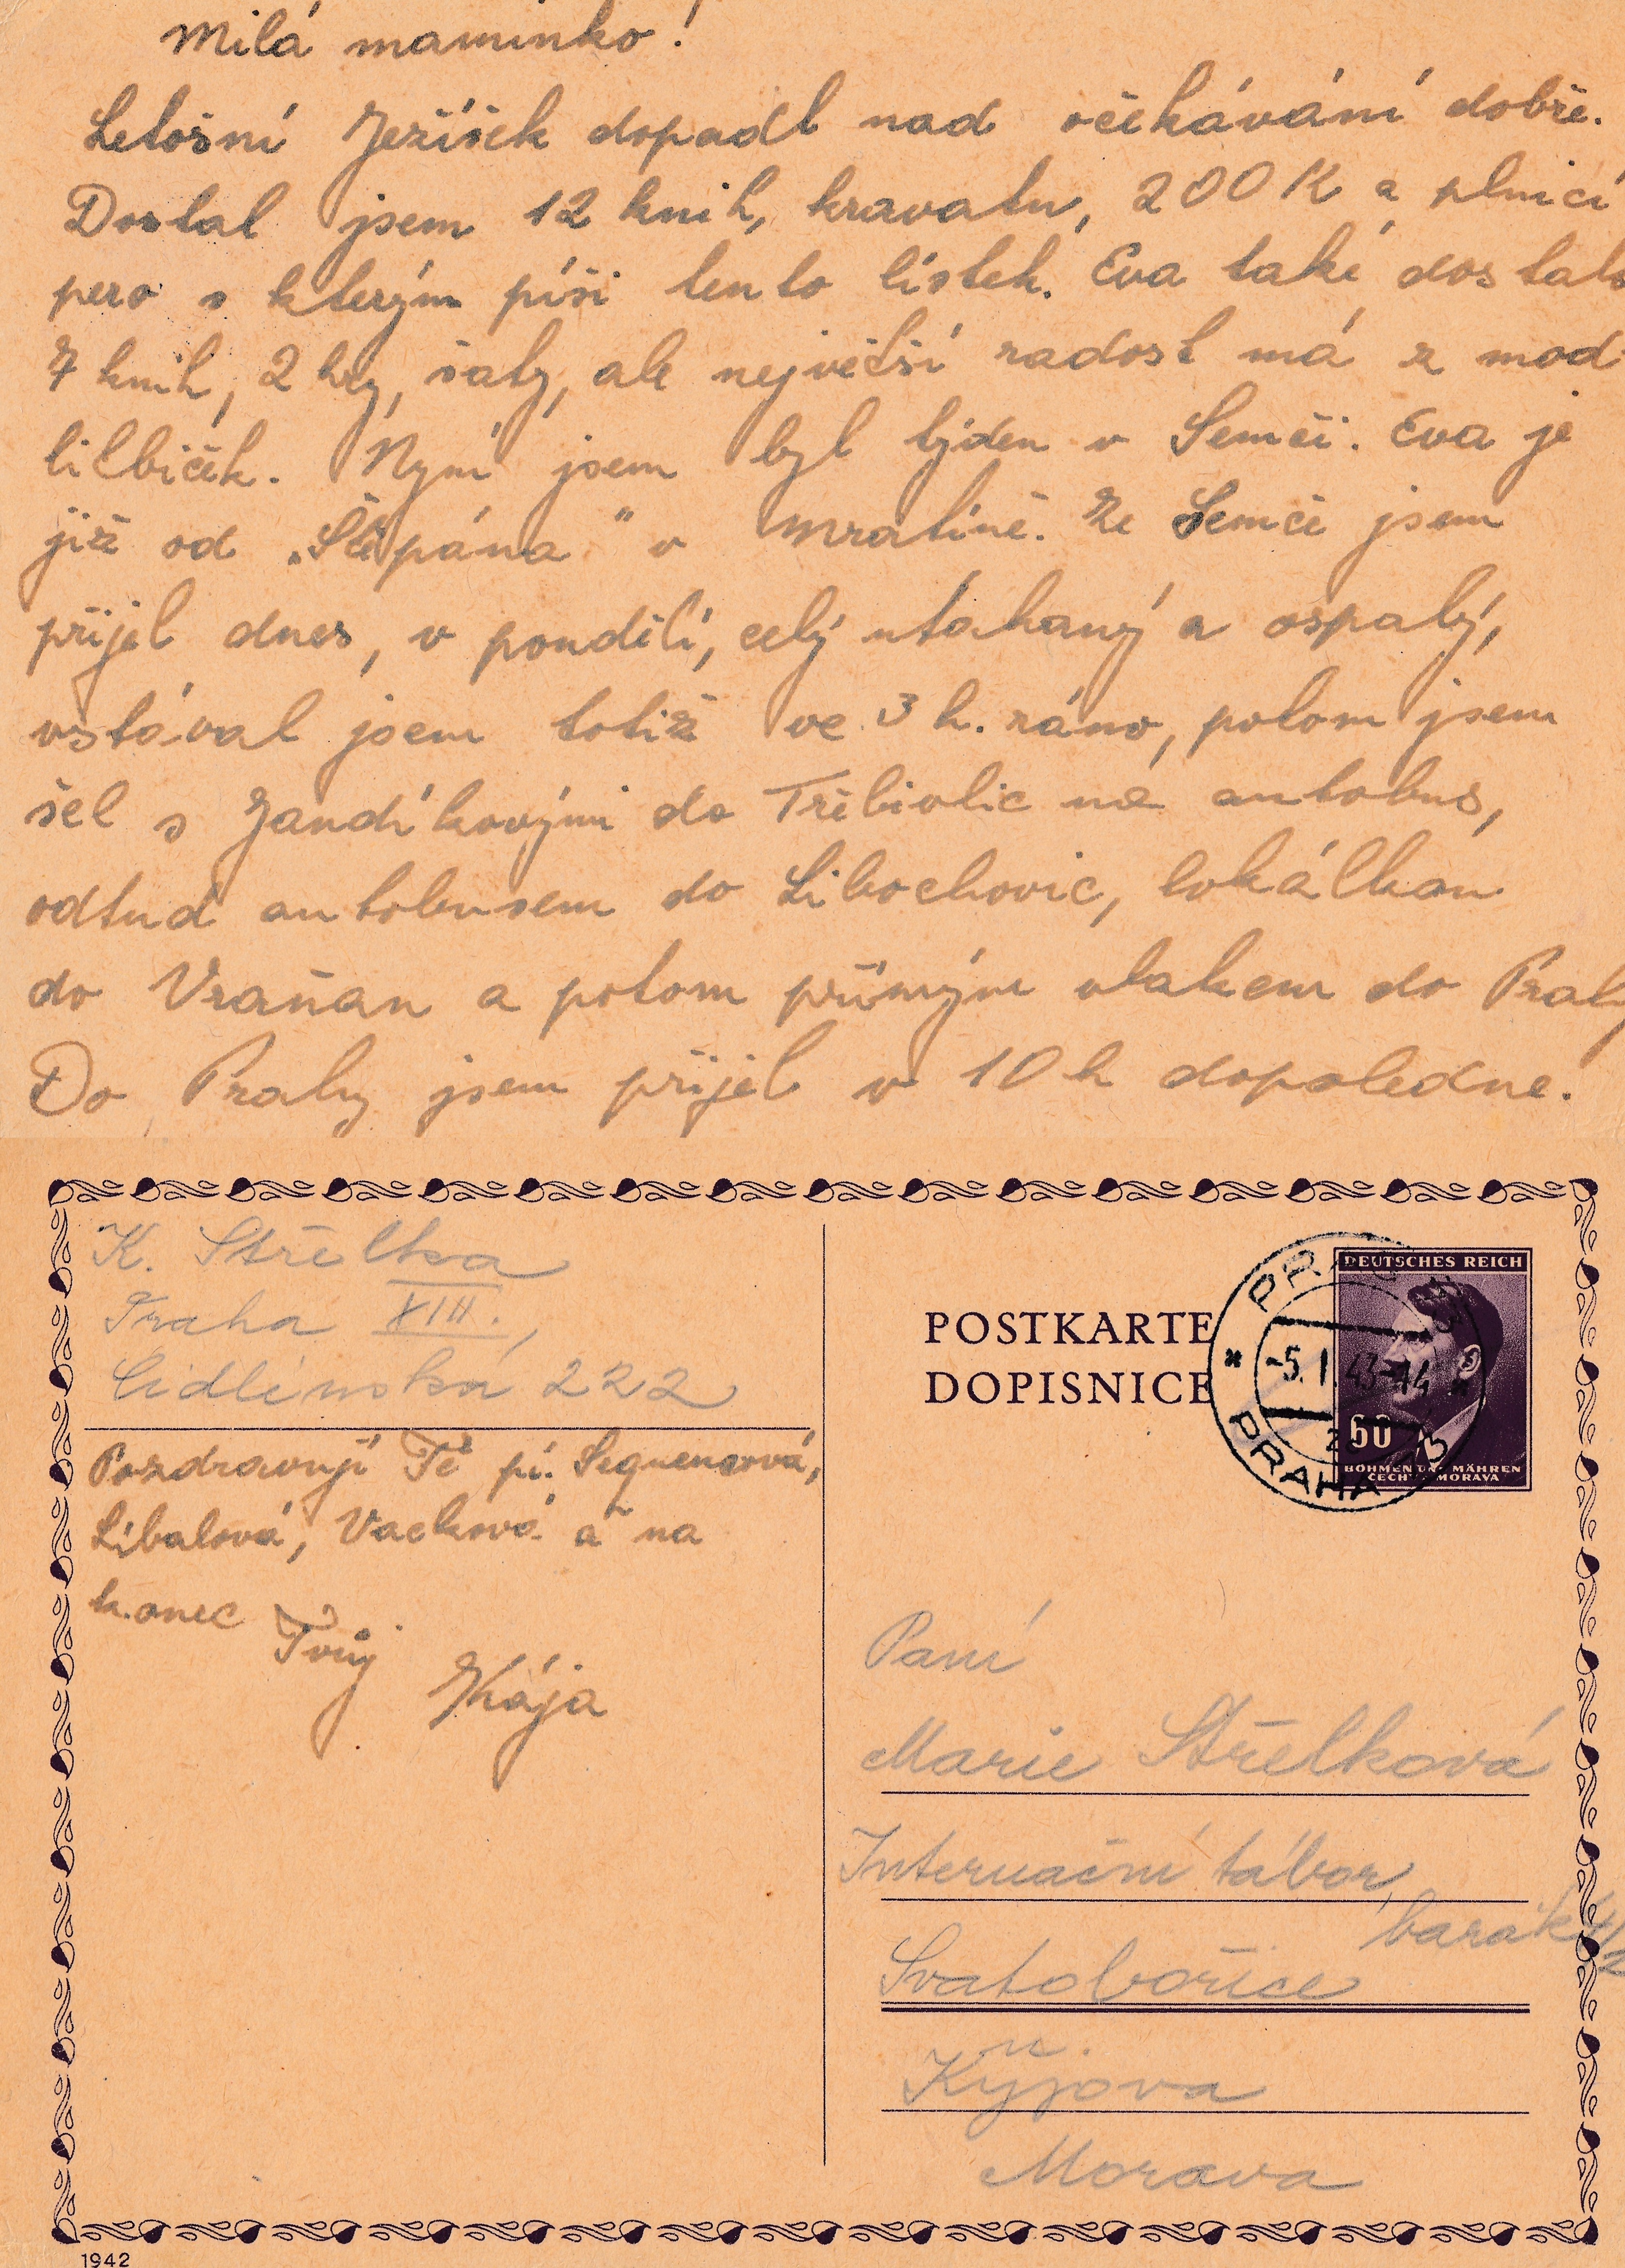 Milá maminko!
Letošní Ježíšek dopadl nad očekávání dobře.
Dostal jsem 12 knih, kravatu, 200 K a plnicí
pero s kterým píši tento lístek. Eva také dostala
7 knih, 2 hry, šaty, ale největší radost má z mod-
litbiček. Nyní jsem byl týden v Semči. Eva je
již od „Štěpána" v Mratíně. Ze Semče jsem
přijel dnes, v pondělí, celý utahaný a ospalý,
vstával jsem totiž ve 3 h. ráno, potom jsem
šel s Jandíkovými do Třebívlic na autobus,
odtud autobusem do Libochovic, lokálkou
do Vraňan a potom přímým vlakem do Prahy
Do Prahy jsem přijel v 10 h dopoledne.
K. Střelka
Praha XIII.,
Cidlinská 222
Pozdravují Tě pí. Sequensová,
Líbalová, Vacková a na
konec Tvůj
Kája
POSTKARTE
DOPISNICE
DEUTSCHES REICH
60
BÖHMEN U. MÄHREN
ČECHY MORAVA
PRAG
-5.I.43-14
PRAHA
Paní
Marie Střelková
Internační tábor,
barák
Svatobořice
u.
Kyjova
Morava
1942